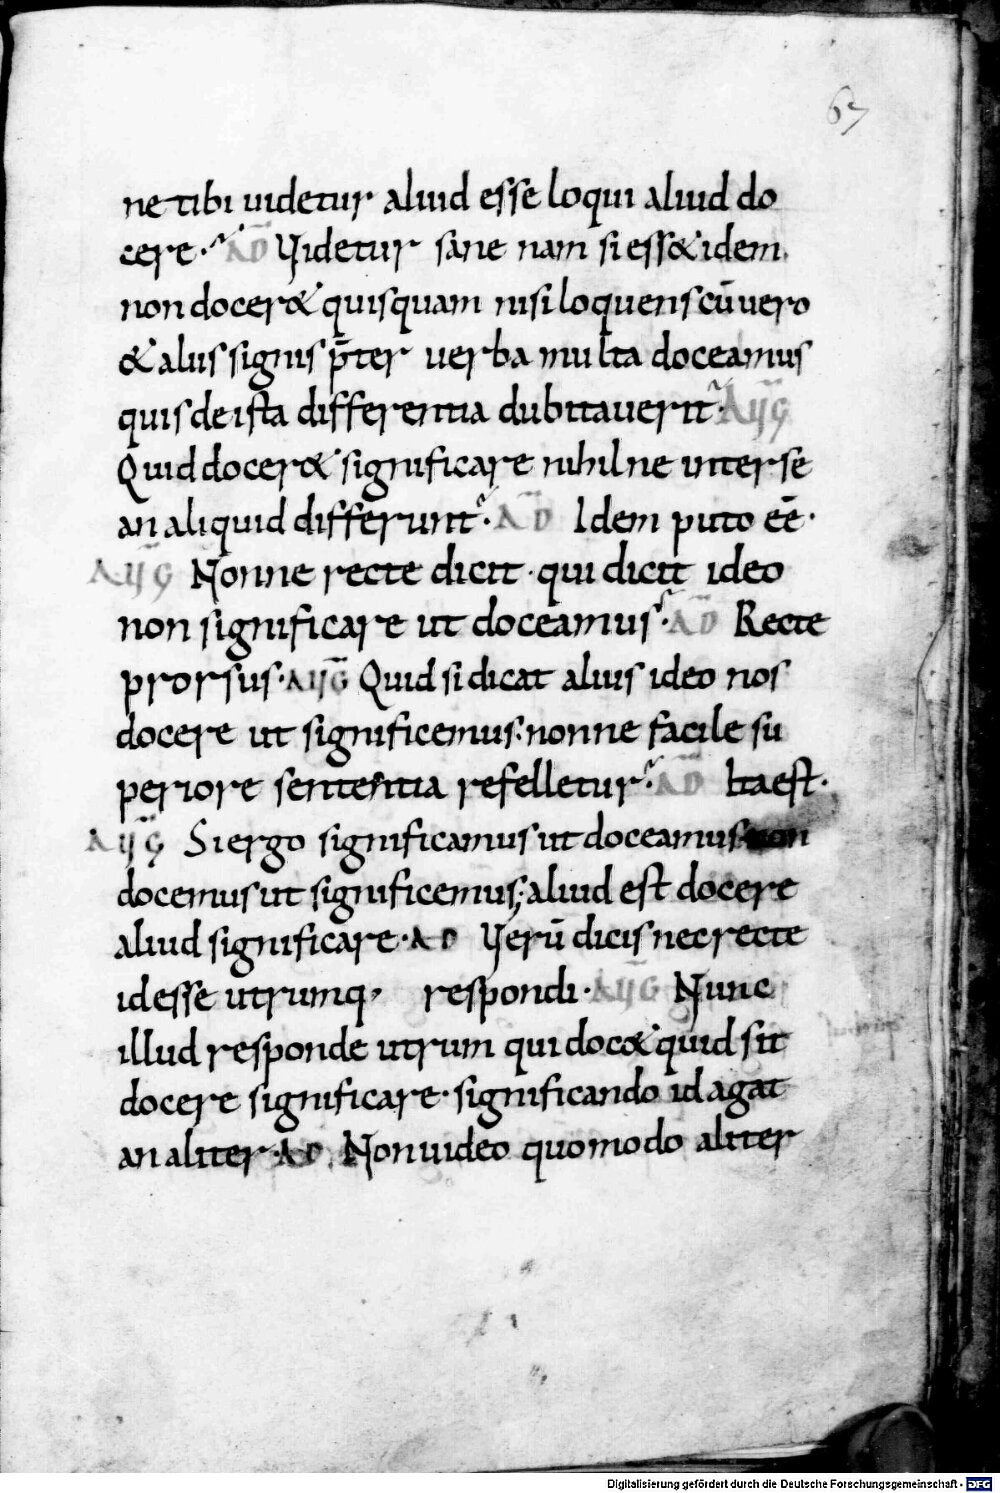 67
ne tibi uidetur aliud esse loqui aliud do
cere· AD Videtur sane nam si ess& idem
non docer& quisquam nisi loquens cū uero
& aliis signis p̄ter uerba multa doceamus
quis de ista differentia dubitauerit· AUG
Quid docer& significare nihil ne inter se
an aliquid differunt· AD Idem puto eē·
AUG Nonne recte dicit· qui dicit ideo
non significare ut doceamus· AD Recte
prorsus· AUG Quid si dicat alius ideo nos
docere ut significemus· nonne facile su
periore sententia refelletur· AD Ita est·
AUG Si ergo significamus ut doceamus non
docemus ut significemus; aliud est docere
aliud significare· AD Verū dicis nec recte
id esse utrumq, respondi· AUG Nunc
illud responde utrum qui doc& quid sit
docere significare· significando id agat
an aliter· AD Non uideo quomodo aliter
Digitalisierung gefördert durch die Deutsche Forschungsgemeinschaft - DFG